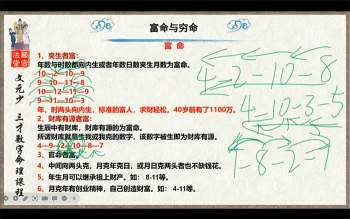 富命与穷命
富 命
1、夹生者富：
年数与时数都向内生或者年数日数夹生月数为富命。
10—2—10—9
9—10—2—10
10—2—10—11
9—11—10—3
年、时两头向内生，标准的富人，求财轻松。40岁前有了1100万。
2、财库有源者富：
生辰中有财库，财库有源的为富命。
所谓财库就是生我或克我的数字，该数字被生即为财库有源。
4—9—2—10—8—7
3、官命者富。
4、中间向两头克，月克年克日，或月日克两头者也不缺钱花。
5、年生月可以继承祖上财产。如：8-11等。
6、月克年有创业精神，自己创造财富。如：4-11等。
文元少 三才数字命理课程
4-2-10-8
4-10-3-5